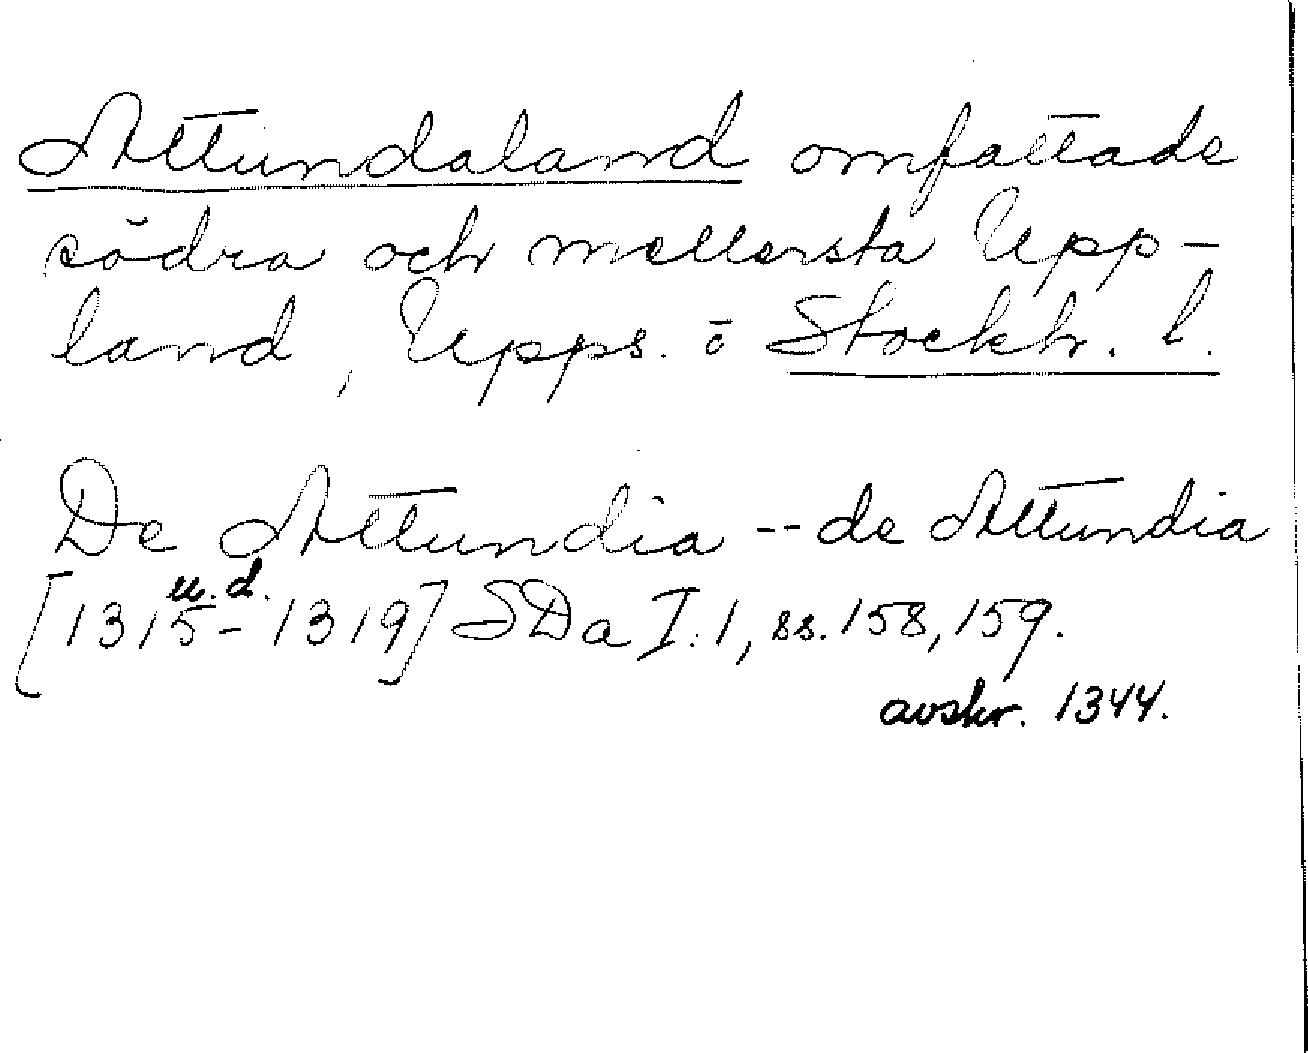 Attundaland omfattade
södra och mellersta Upp-
land, Upps. o Stockh. l.
De Attundia -- de Attundia
u. d.
[1315-1319] SDa I:1, ss. 158, 159.
avskr. 1344.